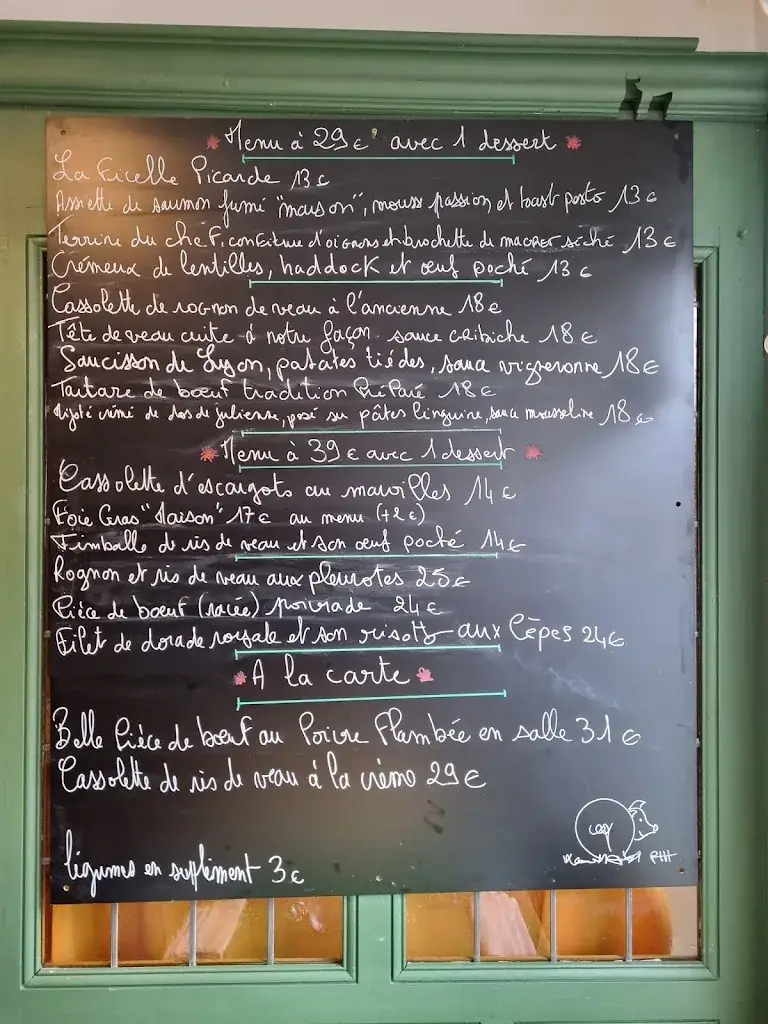 Menu à 29€ avec 1 dessert
La Ficelle Picarde 13€
Assiette de saumon fumé "maison", mousse passion et toast pesto 13€
Terrine du chef, confiture d'oignons et brochette de magret séché 13€
Crémeux de lentilles, haddock et œuf poché 13€
Cassolette de rognon de veau à l'ancienne 18€
Tête de veau cuite à notre façon sauce gribiche 18€
Saucisson de Lyon, patates tiédes, sauce vigneronne 18€
Tartare de bœuf tradition Préparé 18€
Mijoté crémé de dos de julienne, posé sur pâtes linguine, sauce mousseline 18€
Menu à 39€ avec 1 dessert
Cassolette d'escargots au maroilles 14€
Foie Gras "Maison" 17€ au menu (+2€)
Timballe de ris de veau et son œuf poché 14€
Rognon et ris de veau aux pleurotes 25€
Pièce de bœuf (racée) poivrade 24€
Filet de dorade royale et son risotto aux Cèpes 24€
A la carte
Belle Pièce de bœuf au Poivre Flambée en salle 31€
Cassolette de ris de veau à la crème 29€
légumes en supplément 3€